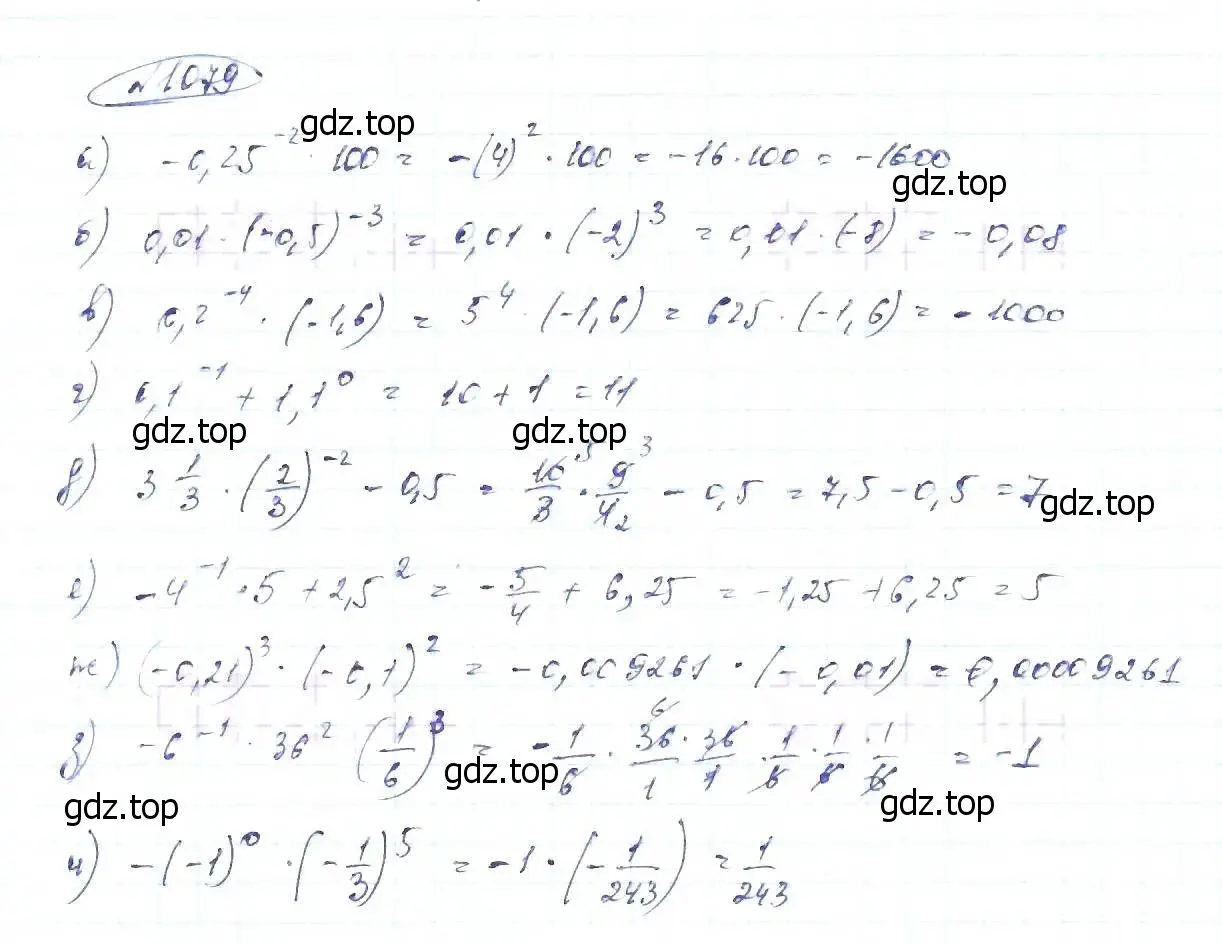 №1079
gdz.top
а) -0,25^-2 · 100 = -(4)^2 · 100 = -16 · 100 = -1600
gdz.top
б) 0,01 · (-0,5)^-3 = 0,01 · (-2)^3 = 0,01 · (-8) = -0,08
в) 0,2^-4 · (-1,6) = 5^4 · (-1,6) = 625 · (-1,6) = -1000
г) 0,1^-1 + 1,1^0 = 10 + 1 = 11
gdz.top gdz.top
д) 3 1/3 · (2/3)^-2 - 0,5 = 10/3 5 · 9/4 3 2 - 0,5 = 7,5 - 0,5 = 7
gdz.top
е) -4^-1 · 5 + 2,5^2 = -5/4 + 6,25 = -1,25 + 6,25 = 5
ж) (-0,21)^3 · (-0,1)^2 = -0,009261 · (-0,01) = 0,00009261
з) -6^-1 · 36^2 (1/6)^3 = -1/6 · 36/1 6 · 36/1 · 1/6 · 1/6 · 1/6 = -1
gdz.top gdz.top gdz.top
и) -(-1)^0 · (-1/3)^5 = -1 · (-1/243) = 1/243